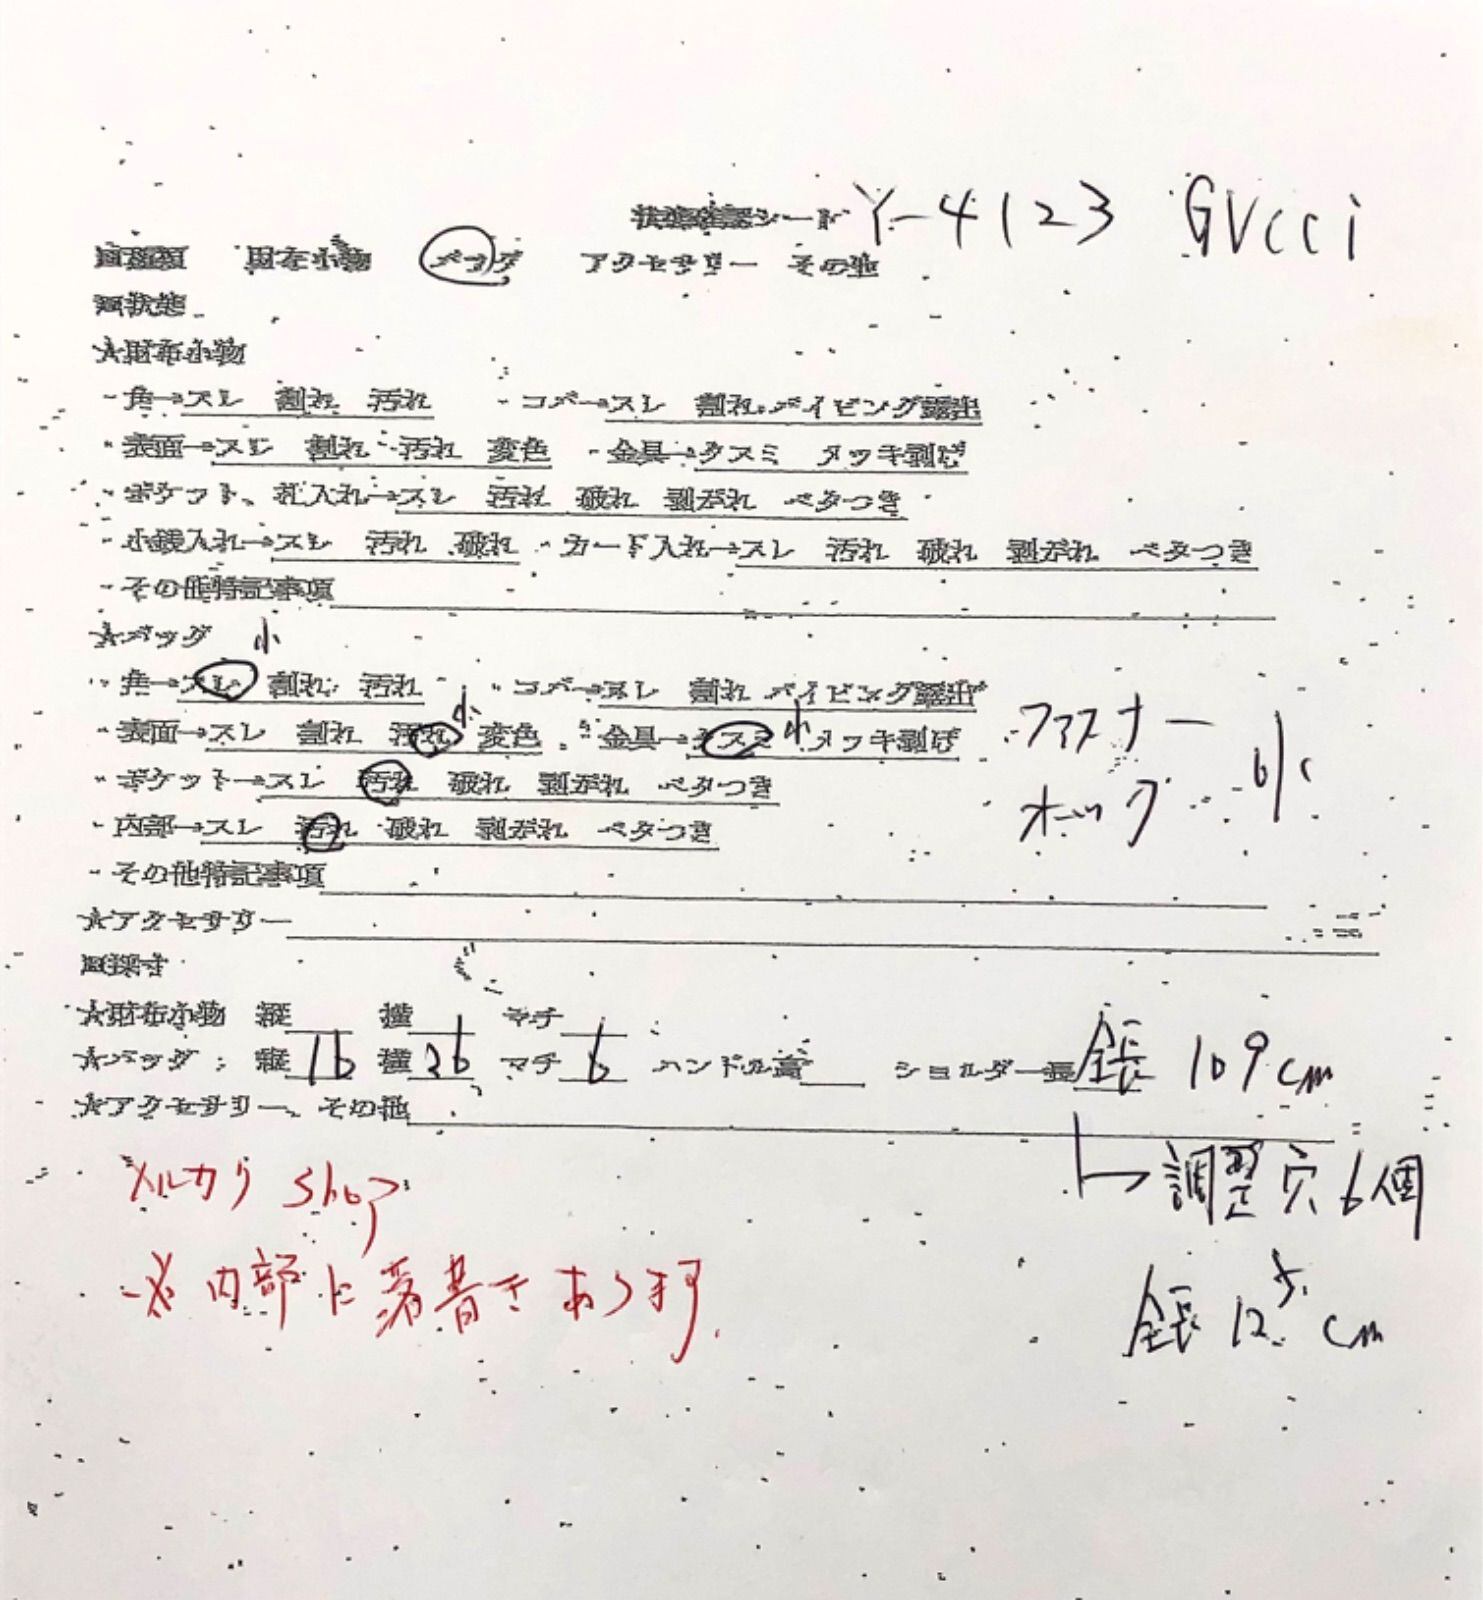 状態確認シート Y-4123 GUCCI
財布小物 バッグ アクセサリー その他
状態
☆財布小物
・角→スレ 割れ 汚れ ・コバ→スレ 割れ パイピング露出
・表面→スレ 割れ 汚れ 変色 ・金具→クスミ メッキ剥げ
・ポケット、札入れ→スレ 汚れ 破れ 剥がれ ベタつき
・小銭入れ→スレ 汚れ 破れ ・カード入れ→スレ 汚れ 破れ 剥がれ ベタつき
・その他特記事項
☆バッグ 小
・角→スレ 割れ 汚れ ・コバ→スレ 割れ パイピング露出
・表面→スレ 割れ 汚れ 小 変色 ・金具→クスミ 小 メッキ剥げ ファスナー
・ポケット→スレ 汚れ 破れ 剥がれ ベタつき 小
・内部→スレ 汚れ 破れ 剥がれ ベタつき
・その他特記事項
☆アクセサリー
採寸
☆財布小物 縦 横 マチ
☆バッグ: 縦 16 横 26 マチ 6 ハンドル高 ショルダー長 全長 109cm
☆アクセサリー、その他
調整穴 6個
メルカリ shop
※内部に落書きあります
全長 12 cm